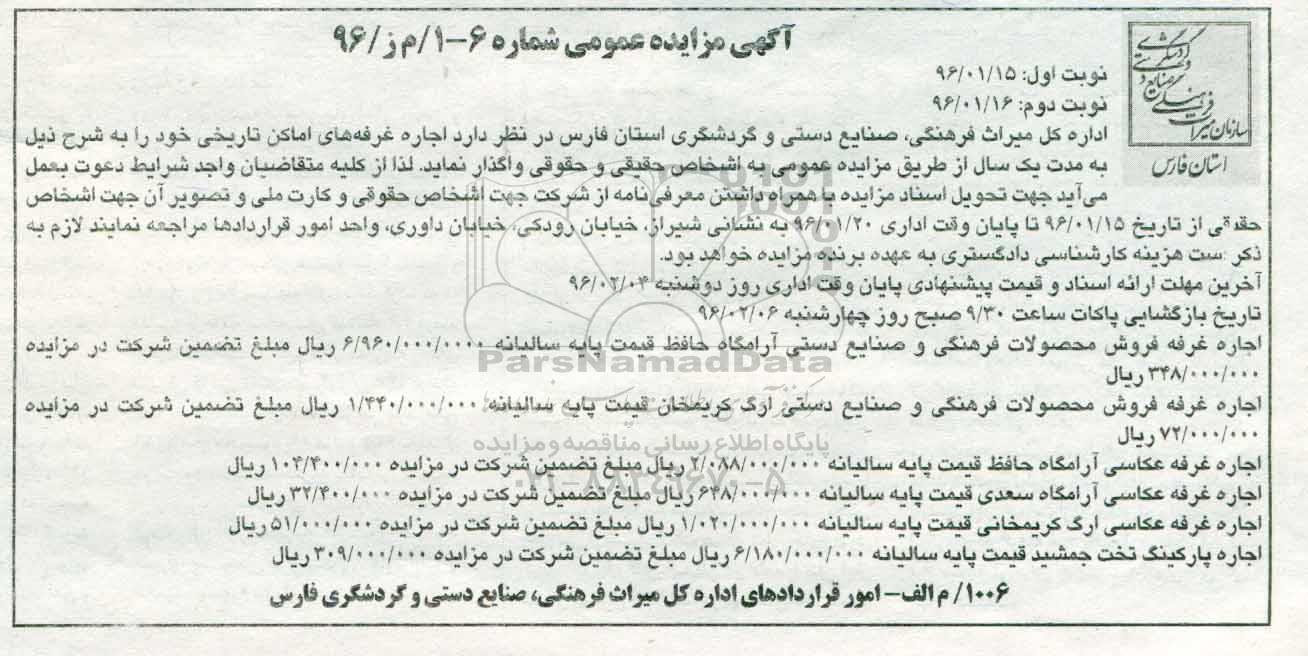 آگهی مزایده عمومی شماره ۶-۱/م ز/۹۶
سازمان میراث فرهنگی صنایع دستی و گردشگری
استان فارس
نوبت اول: ۹۶/۰۱/۱۵
نوبت دوم: ۹۶/۰۱/۱۶
اداره کل میراث فرهنگی، صنایع دستی و گردشگری استان فارس در نظر دارد اجاره غرفه‌های اماکن تاریخی خود را به شرح ذیل
به مدت یک سال از طریق مزایده عمومی به اشخاص حقیقی و حقوقی واگذار نماید. لذا از کلیه متقاضیان واجد شرایط دعوت بعمل
می‌آید جهت تحویل اسناد مزایده با همراه داشتن معرفی‌نامه از شرکت جهت اشخاص حقوقی و کارت ملی و تصویر آن جهت اشخاص
حقوقی از تاریخ ۹۶/۰۱/۱۵ تا پایان وقت اداری ۹۶/۰۱/۲۰ به نشانی شیراز، خیابان رودکی، خیابان داوری، واحد امور قراردادها مراجعه نمایند لازم به
ذکر است هزینه کارشناسی دادگستری به عهده برنده مزایده خواهد بود.
آخرین مهلت ارائه اسناد و قیمت پیشنهادی پایان وقت اداری روز دوشنبه ۹۶/۰۲/۰۴
تاریخ بازگشایی پاکات ساعت ۹/۳۰ صبح روز چهارشنبه ۹۶/۰۲/۰۶
اجاره غرفه فروش محصولات فرهنگی و صنایع دستی آرامگاه حافظ قیمت پایه سالیانه ۶/۹۶۰/۰۰۰/۰۰۰۰ ریال مبلغ تضمین شرکت در مزایده
۳۴۸/۰۰۰/۰۰۰ ریال
اجاره غرفه فروش محصولات فرهنگی و صنایع دستی ارگ کریمخان قیمت پایه سالیانه ۱/۴۴۰/۰۰۰/۰۰۰ ریال مبلغ تضمین شرکت در مزایده
۷۲/۰۰۰/۰۰۰ ریال
اجاره غرفه عکاسی آرامگاه حافظ قیمت پایه سالیانه ۲/۰۸۸/۰۰۰/۰۰۰ ریال مبلغ تضمین شرکت در مزایده ۱۰۴/۴۰۰/۰۰۰ ریال
اجاره غرفه عکاسی آرامگاه سعدی قیمت پایه سالیانه ۶۴۸/۰۰۰/۰۰۰ ریال مبلغ تضمین شرکت در مزایده ۳۲/۴۰۰/۰۰۰ ریال
اجاره غرفه عکاسی ارگ کریمخانی قیمت پایه سالیانه ۱/۰۲۰/۰۰۰/۰۰۰ ریال مبلغ تضمین شرکت در مزایده ۵۱/۰۰۰/۰۰۰ ریال
اجاره پارکینگ تخت جمشید قیمت پایه سالیانه ۶/۱۸۰/۰۰۰/۰۰۰ ریال مبلغ تضمین شرکت در مزایده ۳۰۹/۰۰۰/۰۰۰ ریال
۱۰۰۶/ م الف- امور قراردادهای اداره کل میراث فرهنگی، صنایع دستی و گردشگری فارس
ParsNamadData
پایگاه اطلاع رسانی مناقصه و مزایده
۰۲۱-۸۸۳۴۹۶۷۰-۵